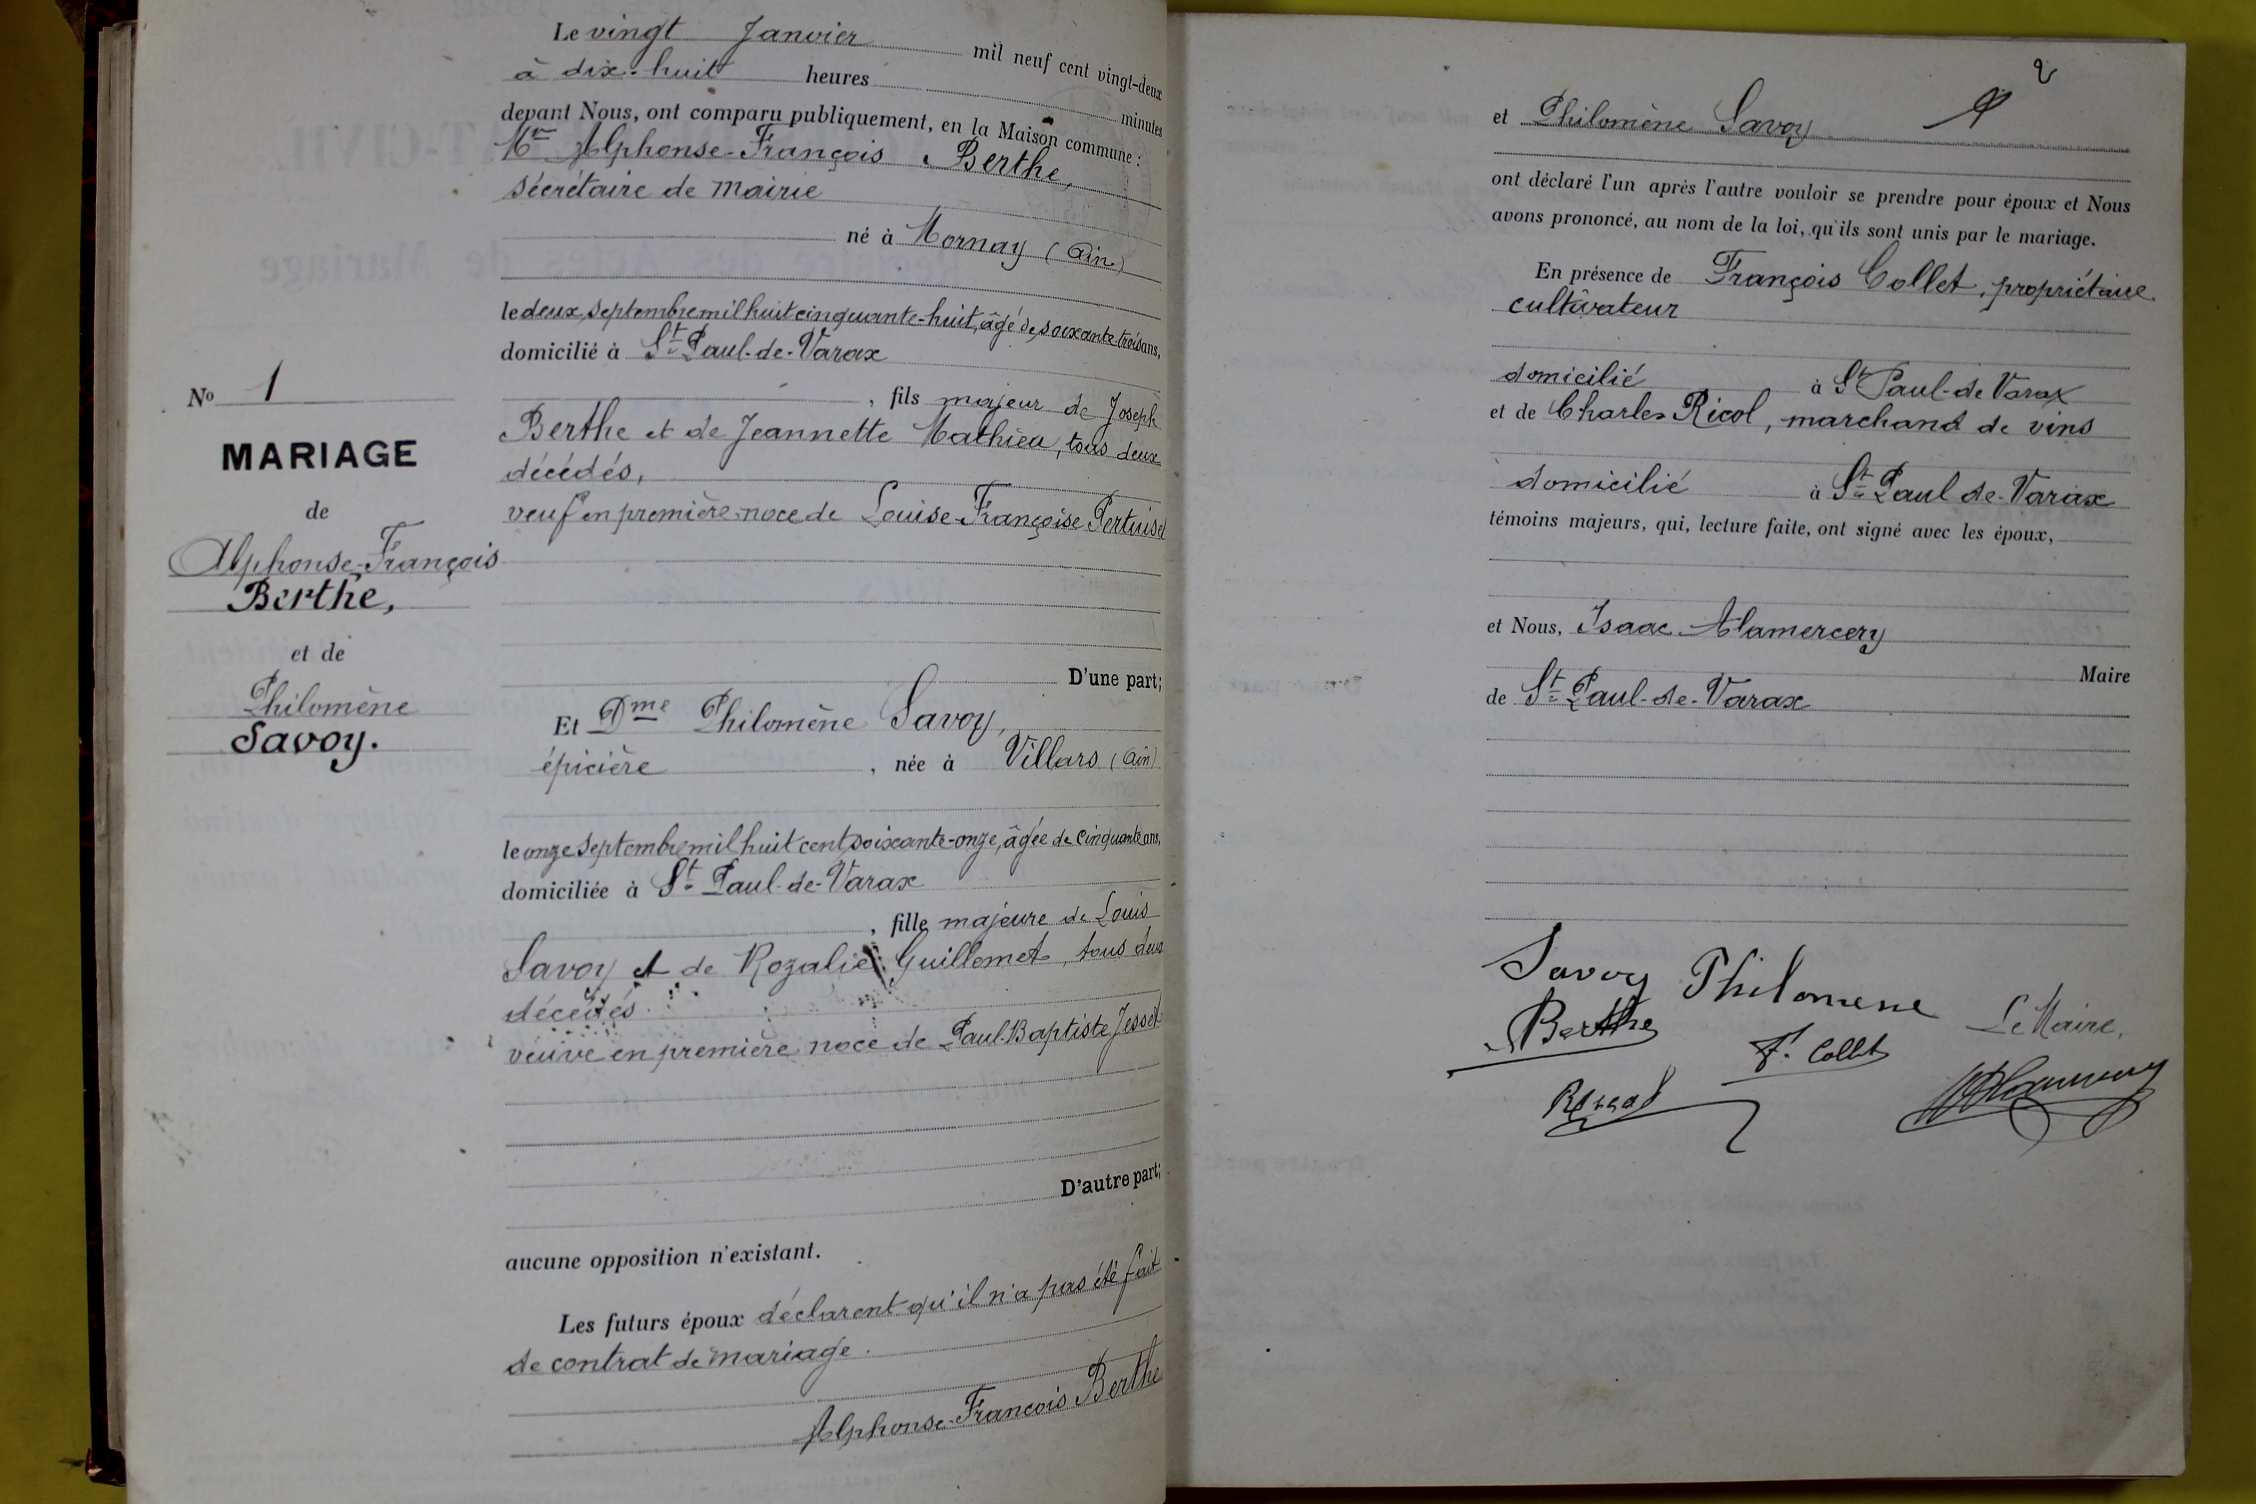 Le vingt Janvier mil neuf cent vingt-deux
à dix-huit heures minutes
devant Nous, ont comparu publiquement, en la Maison commune :
Mr Alphonse-François Berthe,
sécrétaire de Mairie
né à Mornay (Ain)
le deux septembre mil huit cinquante-huit, âgé de soixante-trois ans,
domicilié à St Paul-de-Varax
, fils majeur de Joseph
Berthe et de Jeannette Mathieu, tous deux
décédés,
veuf en première noce de Louise-Françoise Pertuiset
D'une part;
Et Dme Philomène Savoy,
épicière , née à Villars (Ain)
le onze septembre mil huit cent soixante-onze, âgée de cinquante ans,
domiciliée à St Paul-de-Varax
, fille majeure de Louis
Savoy et de Rozalie Guillemet, tous deux
décédés
veuve en première noce de Paul-Baptiste Jesset
D'autre part;
aucune opposition n'existant.
Les futurs époux déclarent qu'il n'a pas été fait
de contrat de mariage.
Alphonse-François Berthe
No 1
MARIAGE
de
Alphonse-François
Berthe,
et de
Philomène
Savoy.
2
et Philomène Savoy
ont déclaré l'un après l'autre vouloir se prendre pour époux et Nous
avons prononcé, au nom de la loi, qu'ils sont unis par le mariage.
En présence de François Collet, propriétaire
cultivateur
domicilié à St Paul-de Varax
et de Charles Ricol, marchand de vins
domicilié à St Paul de-Varax
témoins majeurs, qui, lecture faite, ont signé avec les époux,
et Nous, Isaac Alamercery
Maire
de St Paul-de-Varax
Savoy Philomene
Berthe
Le Maire,
F. Collet